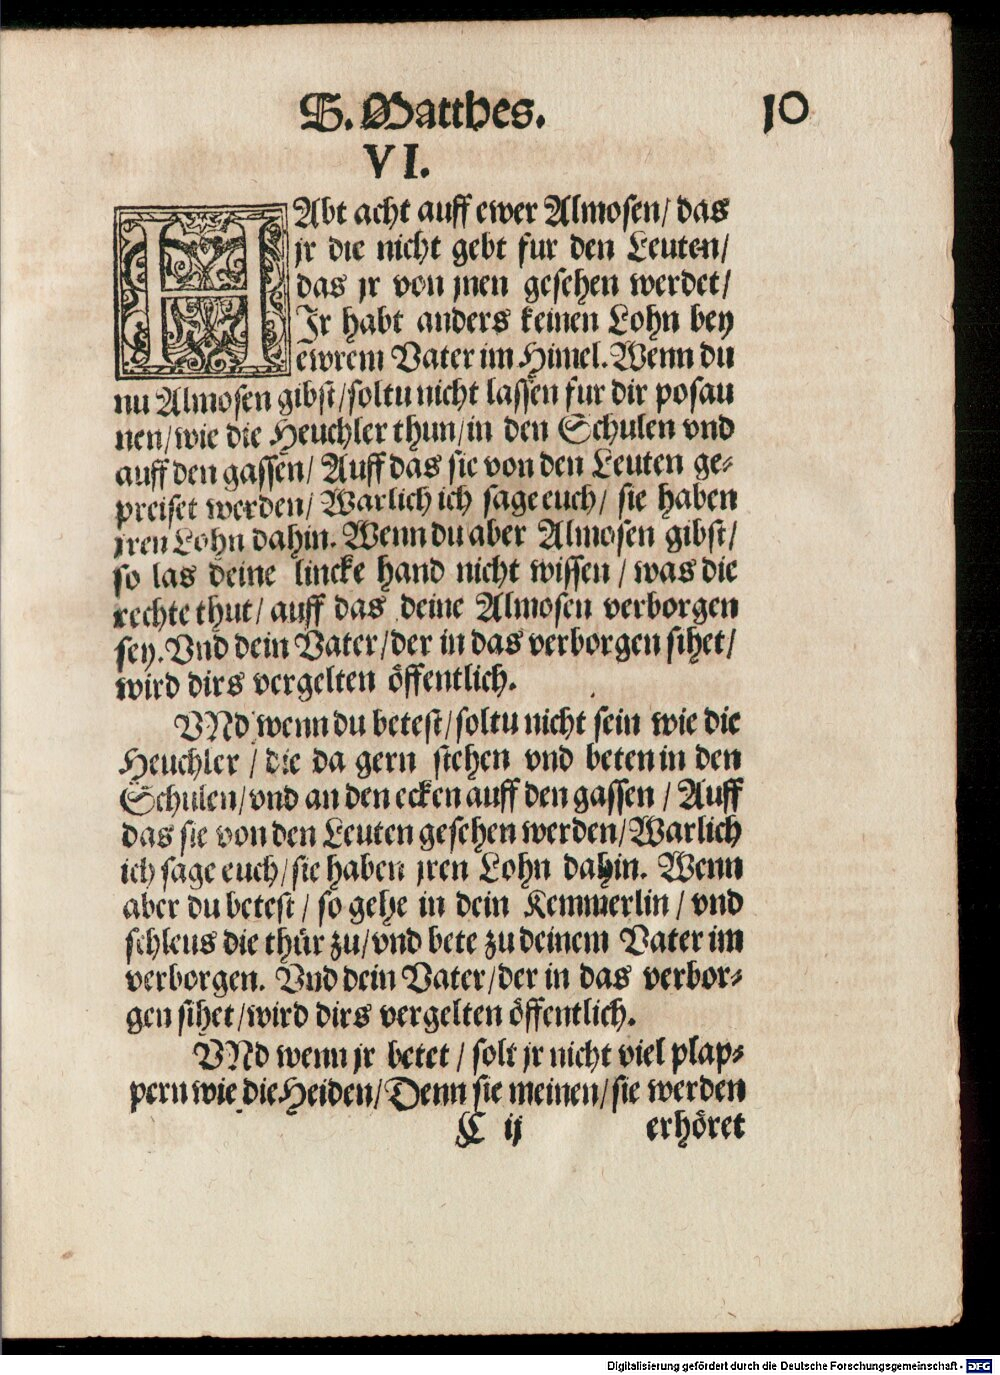 S. Matthes. 10
VI.
HAbt acht auff ewer Almosen/ das
jr die nicht gebt fur den Leuten/
das jr von jnen gesehen werdet/
Jr habt anders keinen Lohn bey
ewrem Vater im Himel. Wenn du
nu Almosen gibst/soltu nicht lassen fur dir posau
nen/wie die Heuchler thun/in den Schulen vnd
auff den gassen/ Auff das sie von den Leuten ge-
preiset werden/ Warlich ich sage euch/ sie haben
jren Lohn dahin. Wenn du aber Almosen gibst/
so las deine lincke hand nicht wissen / was die
rechte thut/ auff das deine Almosen verborgen
sey. Vnd dein Vater/der in das verborgen sihet/
wird dirs vergelten öffentlich.
VNd wenn du betest/soltu nicht sein wie die
Heuchler / die da gern stehen vnd beten in den
Schulen/vnd an den ecken auff den gassen / Auff
das sie von den Leuten gesehen werden/Warlich
ich sage euch/sie haben jren Lohn dahin. Wenn
aber du betest / so gehe in dein Kemmerlin / vnd
schleus die thür zu/vnd bete zu deinem Vater im
verborgen. Vnd dein Vater/der in das verbor-
gen sihet/wird dirs vergelten öffentlich.
VNd wenn jr betet / solt jr nicht viel plap-
pern wie die Heiden/Denn sie meinen/sie werden
C ij erhöret
Digitalisierung gefördert durch die Deutsche Forschungsgemeinschaft - DFG